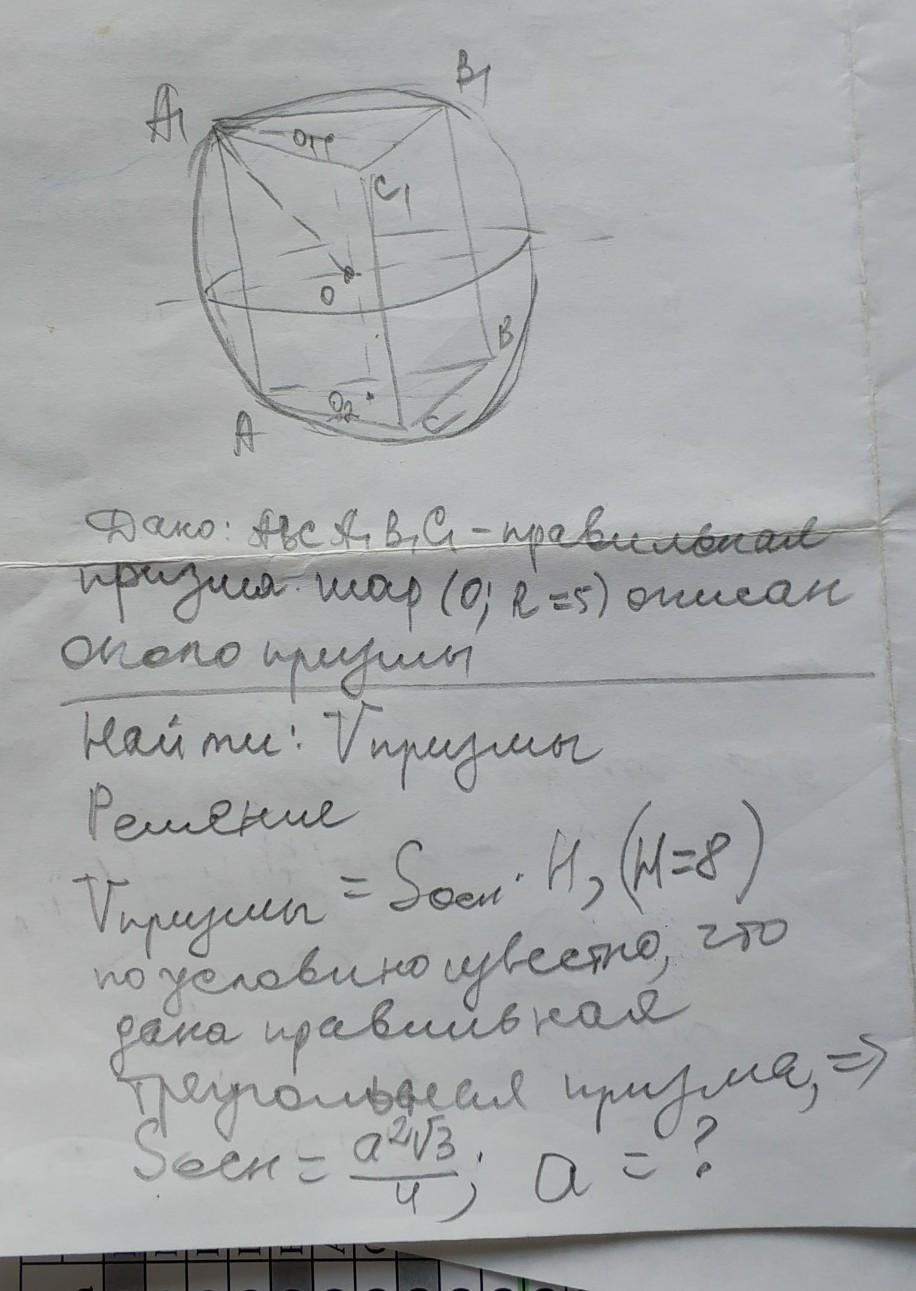 A₁
B₁
O₁
C₁
O
B
O₂
A
C
Дано: ABCA₁B₁C₁ - правильная
призма. шар (O; R=5) описан
около призмы
Найти: Vпризмы
Решение
Vпризмы = Sосн · H, (H=8)
по условию известно, что
дана правильная
треугольная призма, =>
Sосн = a²√3/4; a = ?